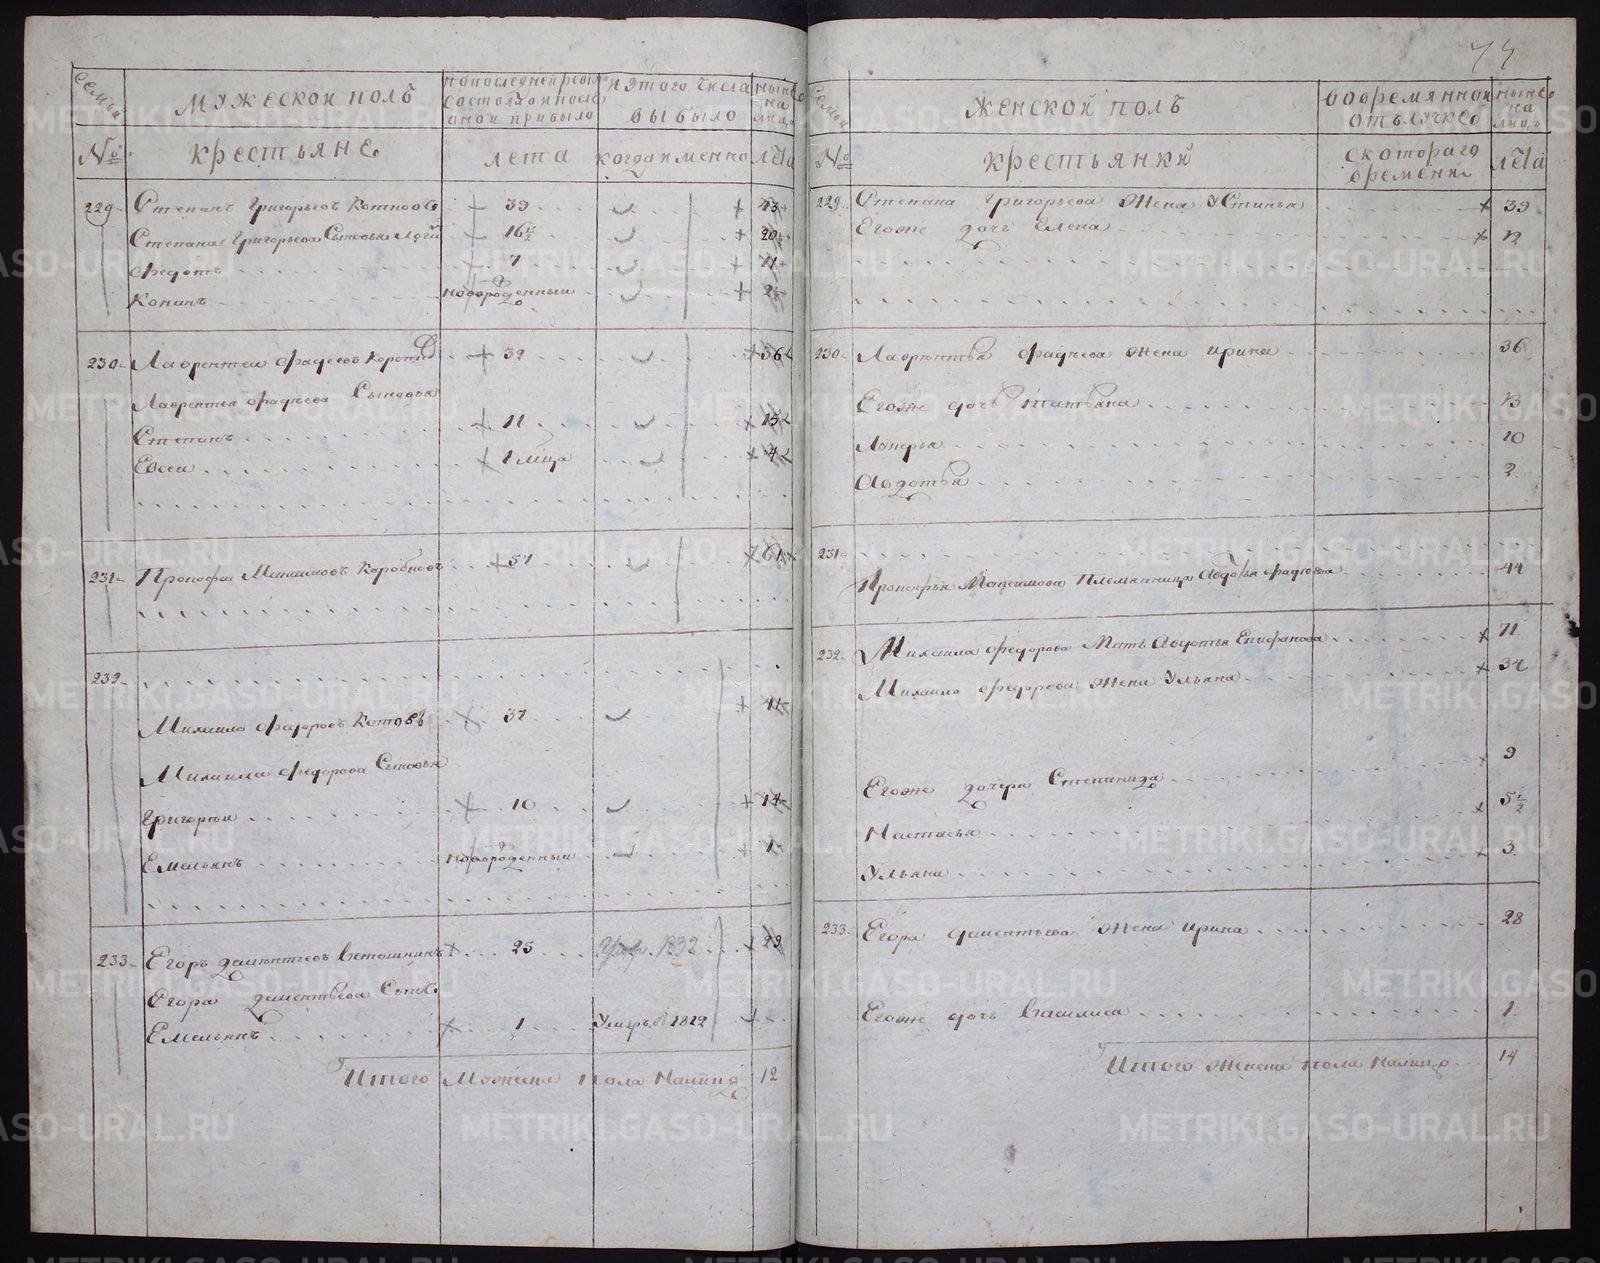 Семьи
МУЖЕСКОЙ ПОЛЪ
по последней ревизии состоя и после оной прибыло
изтого числа выбыло
ныне на лицо
№
крестьяне
лета
когда именно
лета
229 Степанъ Григорьевъ Котловъ 39 43
Степана Григорьева Сыновья 16½ 20½
Федотъ 7 11
Конанъ новорожденный
230 Лаврентей Фадеевъ 32 36
Лаврентья Фадеева Сыновья
Степанъ 11 15
Евсей 1 мца 4
231 Прокофей Максимовъ 57 61
232
Михаило Федоровъ Котовъ 37 41
Михаила Федорова Сыновья
Григорей 10 14
Емельянъ новорожденный 1
233 Егоръ Дементьевъ Ветошкинъ 25 1832 29
Егора Дементьева Сынъ
Емельянъ 1 Умеръ в 1812
Итого Мужеска пола налицо 12
74
Семьи
ЖЕНСКОЙ ПОЛЪ
во временной отълучке
ныне на лицо
№
крестьянки
с котораго времени
лета
229 Степана Григорьева Жена Устинья 39
Егоже дочь Елена 12
230 Лаврентья Фадеева Жена Ирина 36
Егоже дочь Татьяна 13
Лукерья 10
Авдотья 2
231
Прокофья Максимова Племянница Авдотья Фадеева 44
232 Михаила Федорова Мать Авдотья Епифанова 71
Михаило Федорова Жена Ульяна 34
Егоже дочери Степанида 9
Настасья 5½
Ульяна 3
233 Егора Дементьева Жена Ирина 28
Егоже дочь Василиса 1
Итого Женска пола налицо 14
METRIKI.GASO-URAL.RU